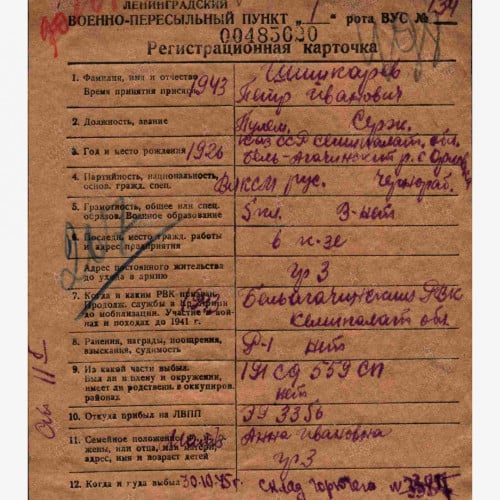 ЛЕНИНГРАДСКИЙ
ВОЕННО-ПЕРЕСЫЛЬНЫЙ ПУНКТ „ 1 " рота ВУС № 134
00485620
Регистрационная карточка
1. Фамилия, имя и отчество Шишкарев
Время принятия присяги 1943 Петр Иванович
2. Должность, звание Пулем. Серж.
3. Год и место рождения 1926 КазССР Семипалат. обл.
Бель-Агачинский р. с.
4. Партийность, национальность, ВЛКСМ рус. Чернораб.
основ. гражд. спец.
5. Грамотность, общее или спец. 5 кл. В-нет
образов. Военное образование
6. Последн. место гражд. работы в к-зе
и адрес предприятия
Адрес постоянного жительства гр 3
до ухода в армию
7. Когда и каким РВК призван. Бельагачинским РВК
Продолж. службы в Кр. Армии
до мобилизации. Участие в вой- Семипалат обл
нах и походах до 1941 г.
8. Ранения, награды, поощрения, Р-1 нет
взыскания, судимость
9. Из какой части выбыл. 191 СД 559 СП
Был ли в плену и окружении, нет
имеет ли родствен. в оккупиров.
районах
10. Откуда прибыл на ЛВПП ЭГ 3356
11. Семейное положение,
жены, или отца, или матери, Анна Ивановна
адрес, имя и возраст детей гр 3
12. Когда и куда выбыл 30.10.45 г. склад горючего №